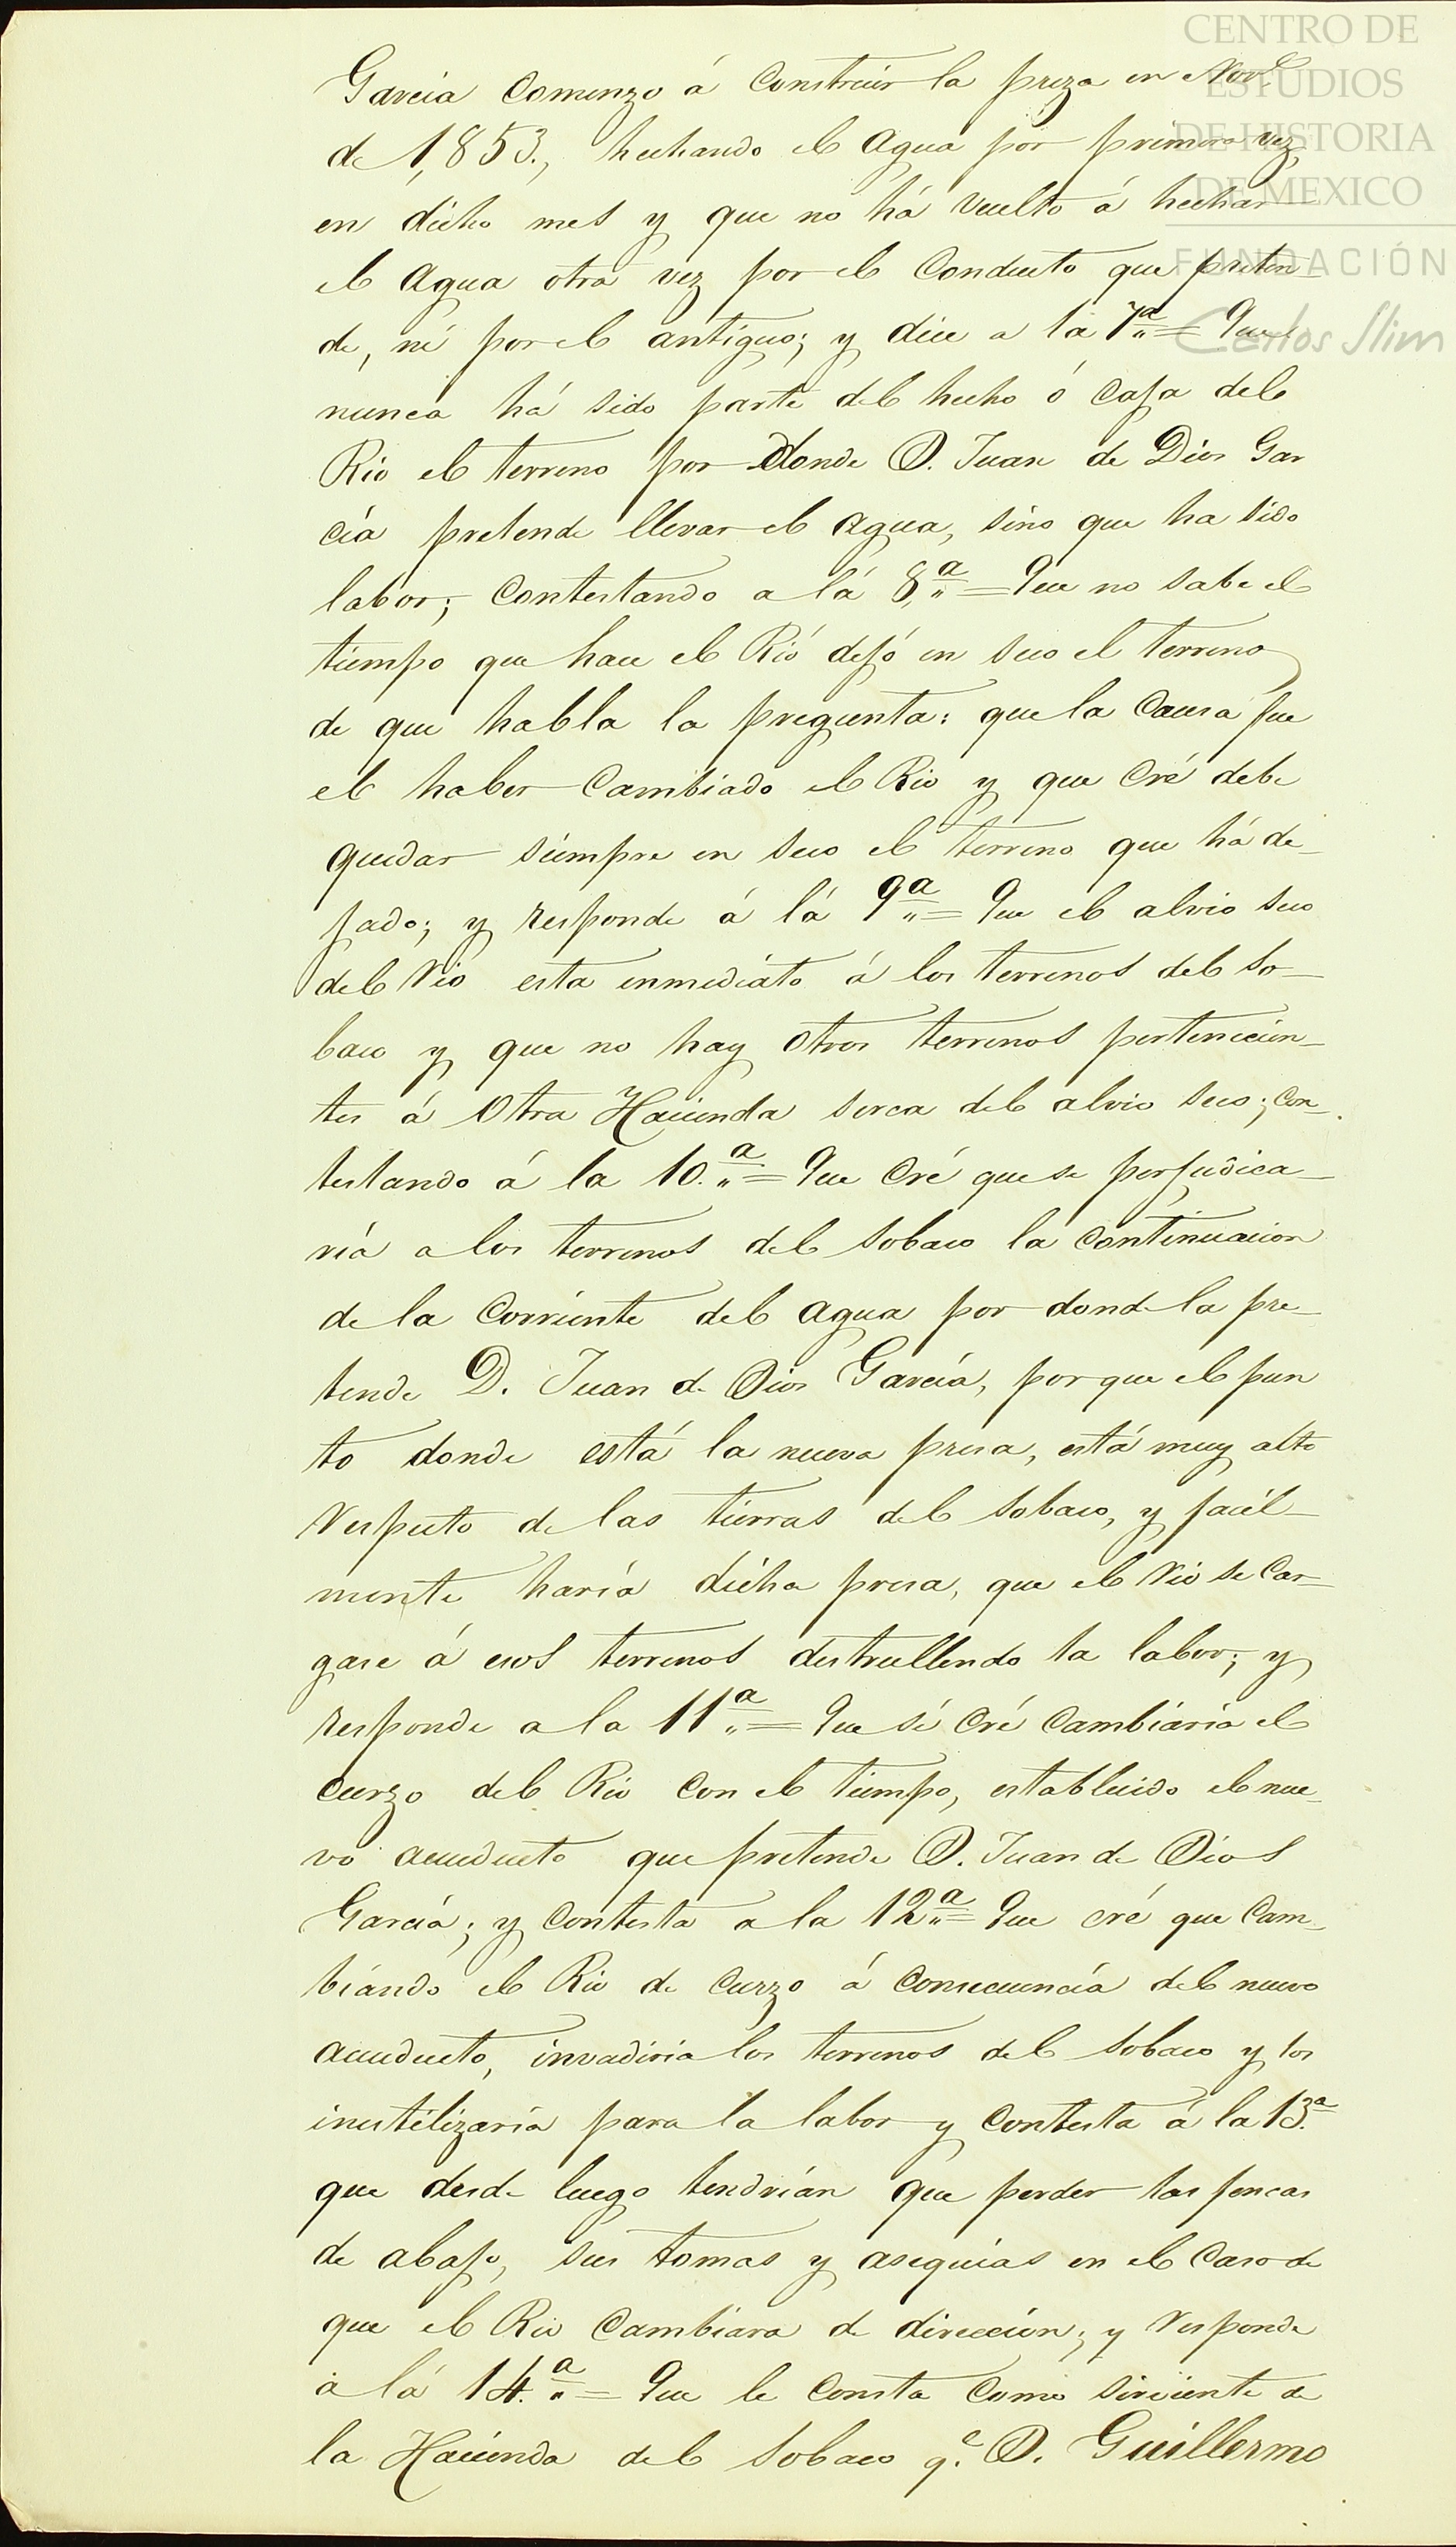 CENTRO DE
ESTUDIOS
DE HISTORIA
DE MEXICO
FUNDACIÓN
Carlos Slim
García Comenzo á Construir la preza en Nov.e
de 1,853., hechando el Agua por primera vez,
en dicho mes y que no há vuelto á hechar
el Agua otra vez por el Conducto que preten
de, ni por el antiguo; y dice a la 7.a = Que
nunca há sido parte del hecho ó Caja del
Rio el terreno por donde D. Juan de Dios Gar
cía pretende llevar el agua, sino que ha sido
labor; Contestando a lá 8.a = Que no sabe el
tiempo que hace el Rió dejó en seco el terreno
de que habla la pregunta: que la Causa fue
el haber Cambiado el Rio y que Cré debe
quedar siempre en seco el terreno que há de
jado; y responde á lá 9.a = Que el alvio seco
del Rio esta inmediato á los terrenos del So-
baco y que no hay otros terrenos pertenecien-
tes á Otra Hacienda serca del alvio seco; con
testando á la 10.a = Que Cré que se perjudica-
ría a los terrenos del Sobaco la continuacion
de la Corriente del agua por donde la pre-
tende D. Juan de Dios García, por que el pun
to donde está la nueva presa, está muy alto
respecto de las tierras del Sobaco, y facil-
mente haría dicha presa, que el Rio se Car-
gase á esos terrenos destrullendo la labor; y
responde a la 11.a = Que sí Cré Cambiaria el
curzo del Rio Con el tiempo, establecido el nue-
vo acueducto que pretende D. Juan de Dios
García; y Contesta a la 12.a = Que cré que Cam-
biando el Rio de Curzo á Consecuencia del nuevo
acueducto, invadiria los terrenos del Sobaco y los
inutilizaría para la labor y Contesta á la 13.a
que desde luego tendrían que perder las fencas
de abajo, sus tomas y asequias en el Caso de
que el Rio Cambiara de direccion; y responde
a lá 14.a = Que le Consta Como sirviente de
la Hacienda del Sobaco q.e D. Guillermo